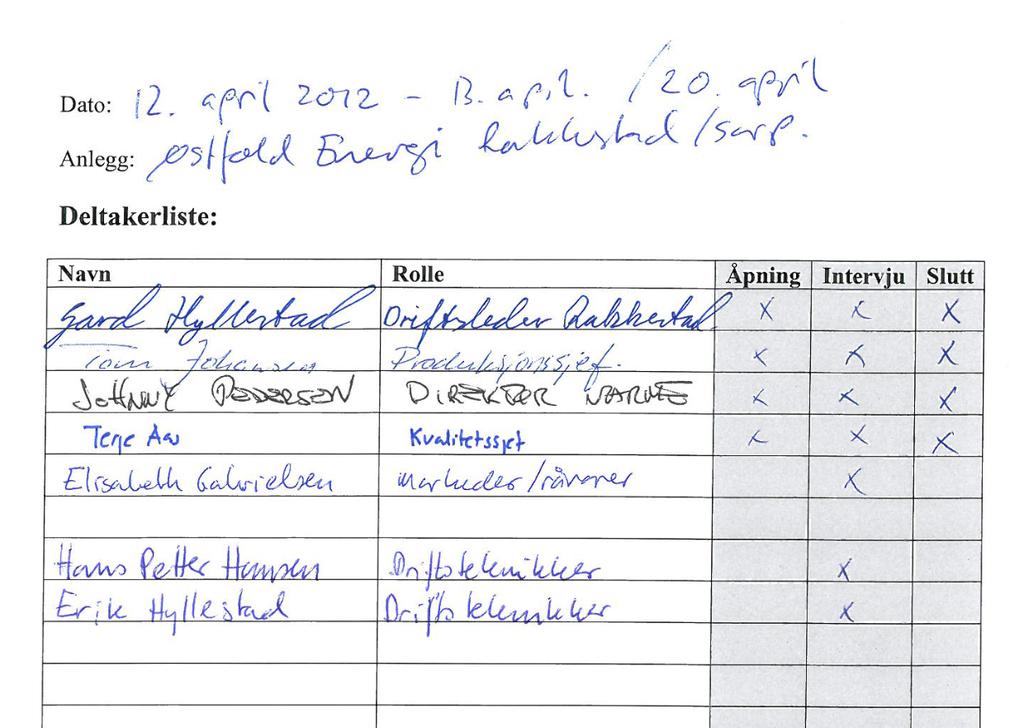 Dato: 12. april 2012 - 13. april. / 20. april
Anlegg: Østfold Energi Rakkestad / Sarp.
Deltakerliste:
Navn Rolle Åpning Intervju Slutt
Gard Hyllestad Driftsleder Rakkestad X X X
Tom Johansen Produksjonssjef. X X X
JOHNNY PEDERSEN DIREKTØR VARME X X X
Terje Aas Kvalitetssjef X X X
Elisabeth Gabrielsen Markeder/råvarer X
Hans Petter Hansen Driftstekniker X
Erik Hyllestad Driftstekniker X